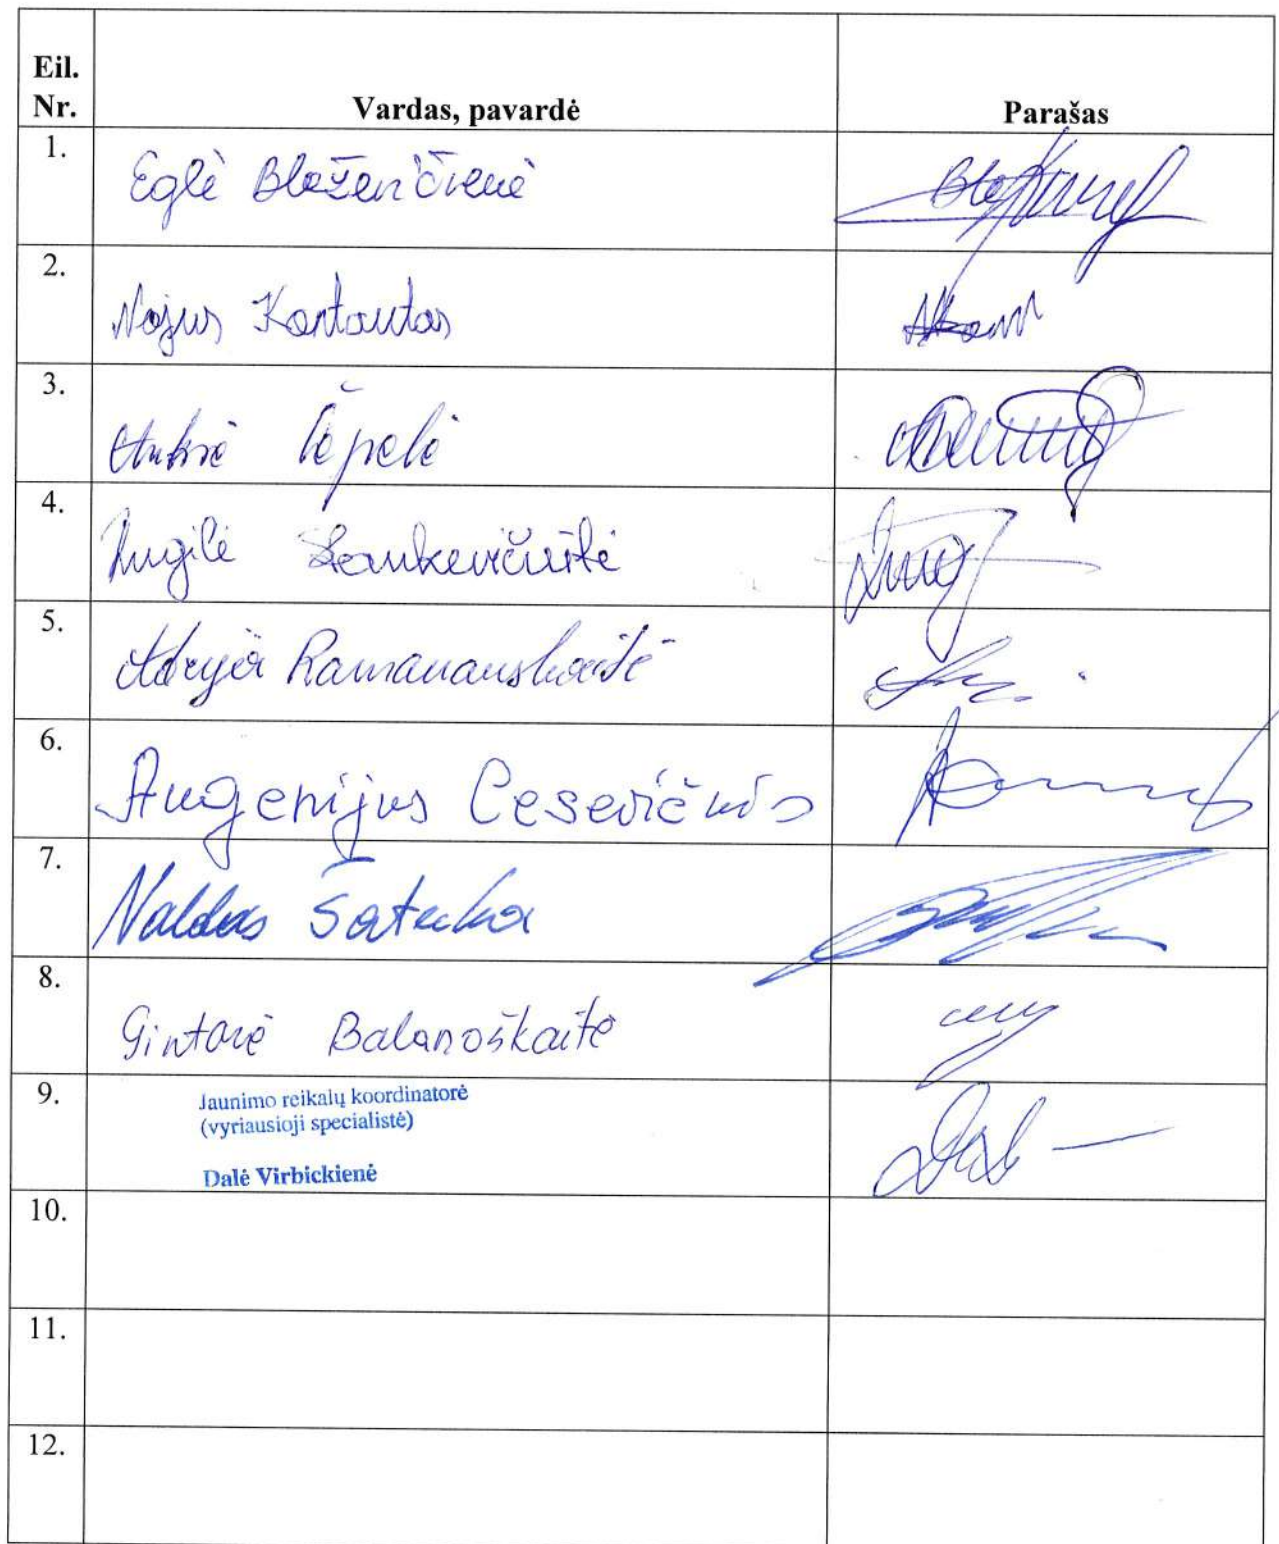 Eil.
Nr. Vardas, pavardė Parašas
1. Eglė Blaženčienė
2. Nojus Kantautas
3. Čepelė
4. Rugilė Stankevičiūtė
5. Adrija Ramanauskaitė
6. Augenijus Cesevičius
7. Naldas Šatecka
8. Gintarė Balanoškaitė
9. Jaunimo reikalų koordinatorė
(vyriausioji specialistė)
Dalė Virbickienė
10.
11.
12.